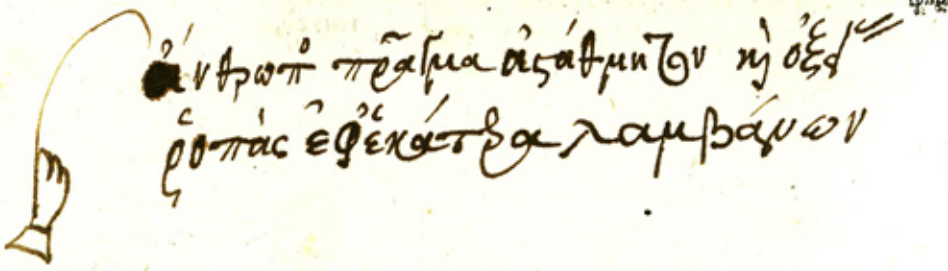 ἄνθρωπος πρᾶγμα ἀστάθμητον καὶ ὀξείας
ῥοπὰς ἐφ' ἑκάτερα λαμβάνων